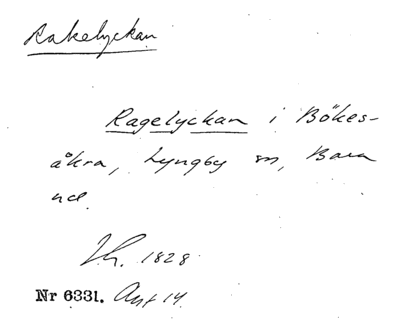 Rakelyckan
Ragelyckan i Bökes-
åkra, Lyngby sn, Bara
hd.
Th. 1828
Nr 6331. Ant 14